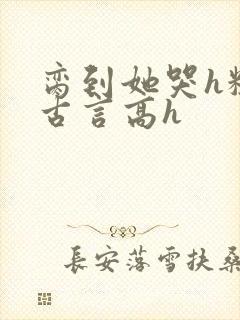 脔到她哭h糙
古言高h
長安落雪扶桑